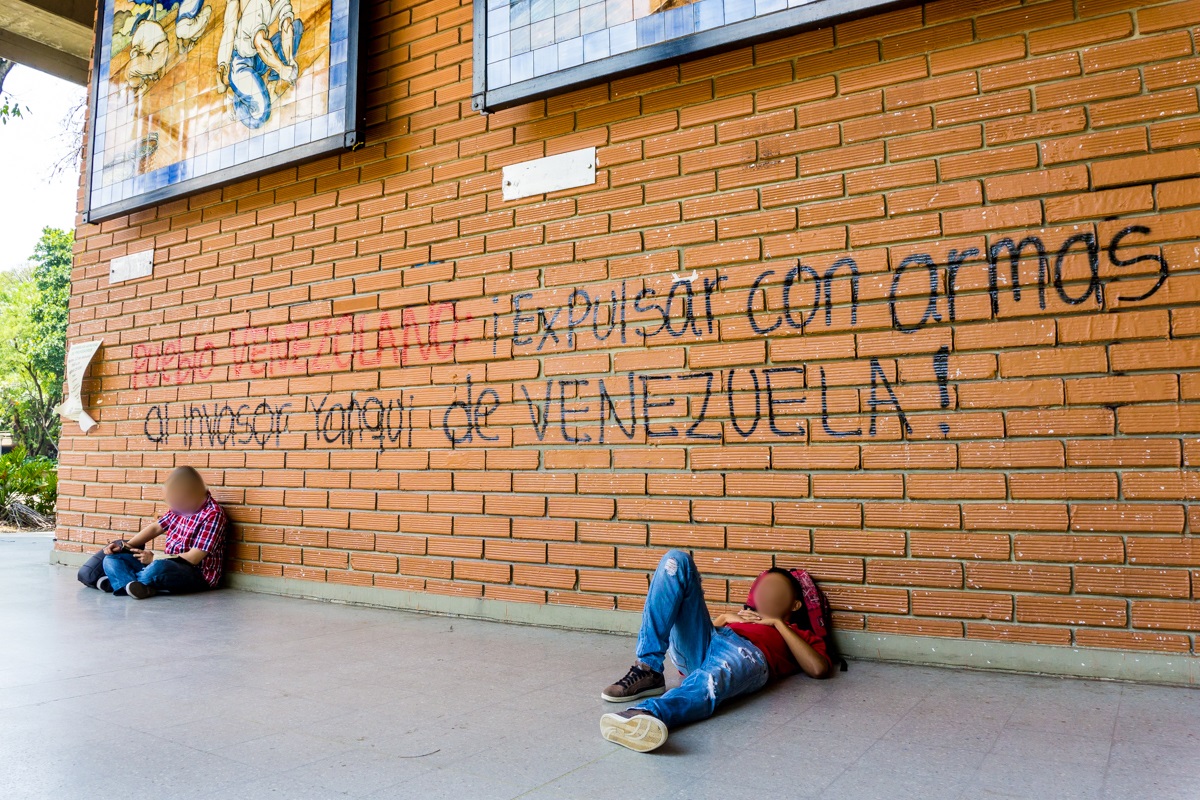 PUEblO VENEZOLANO: ¡EXPUlsar con armas
al invasor Yanqui de VENEZUELA!